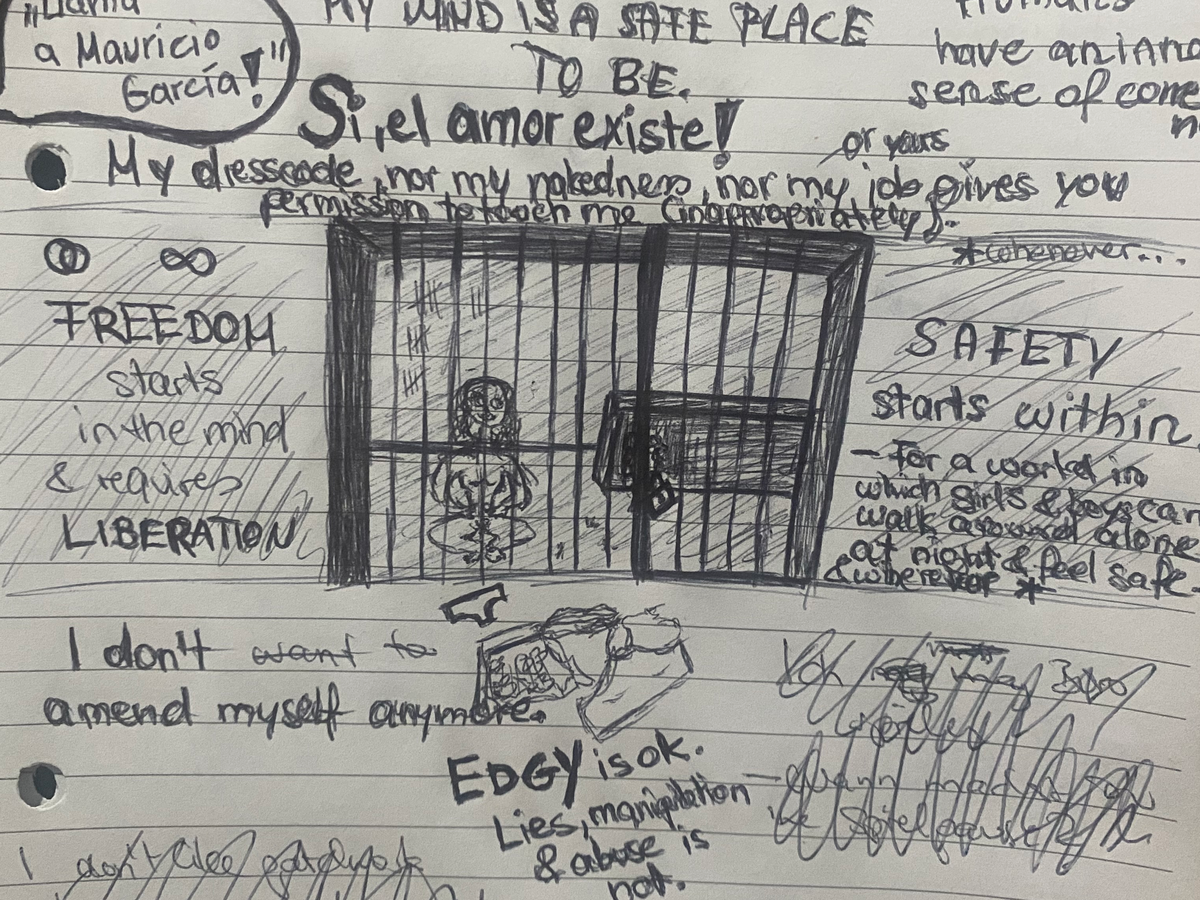 "Llama
a Mauricio
García!"
MY MIND IS A SAFE PLACE
TO BE.
Humans
have an inna
sense of conne
n
Si, el amor existe!
or yours
My dresscode, nor my nakedness, nor my job gives you
permission to touch me (inappropriately).
*whenever...
FREEDOM
starts
in the mind
& requires
LIBERATION
SAFETY
starts within
- For a world in
which girls & boys can
walk around alone
at night & feel safe.
& wherever *
I don't want to
amend myself anymore.
EDGY is ok.
Lies, manipulation
& abuse is
not.
I don't